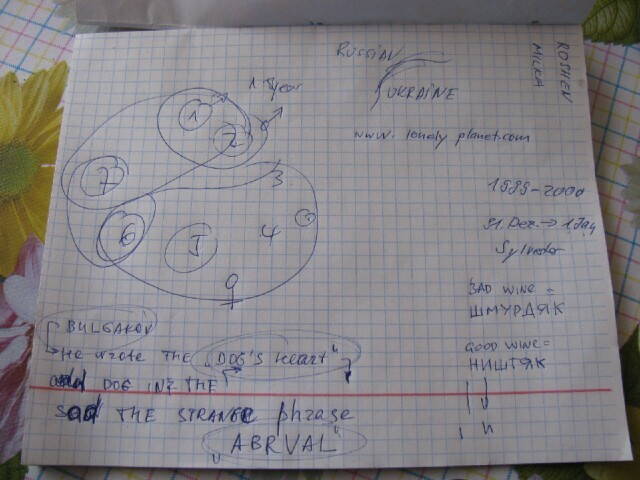 RUSSIAN
UKRAINE
ROSHEN
MILKA
1 year
www.lonely planet.com
1
2
3
7
6
5
4
9
1999-2000
31. Dez. → 1 Jan
Sylvester
BAD WINE =
ШМУРДЯК
GOOD WINE=
НИШТЯК
BULGAKOV
He wrote the „DOG'S Heart"
DOG IN THE
SAD THE STRANGE phrase
„ABRVAL"